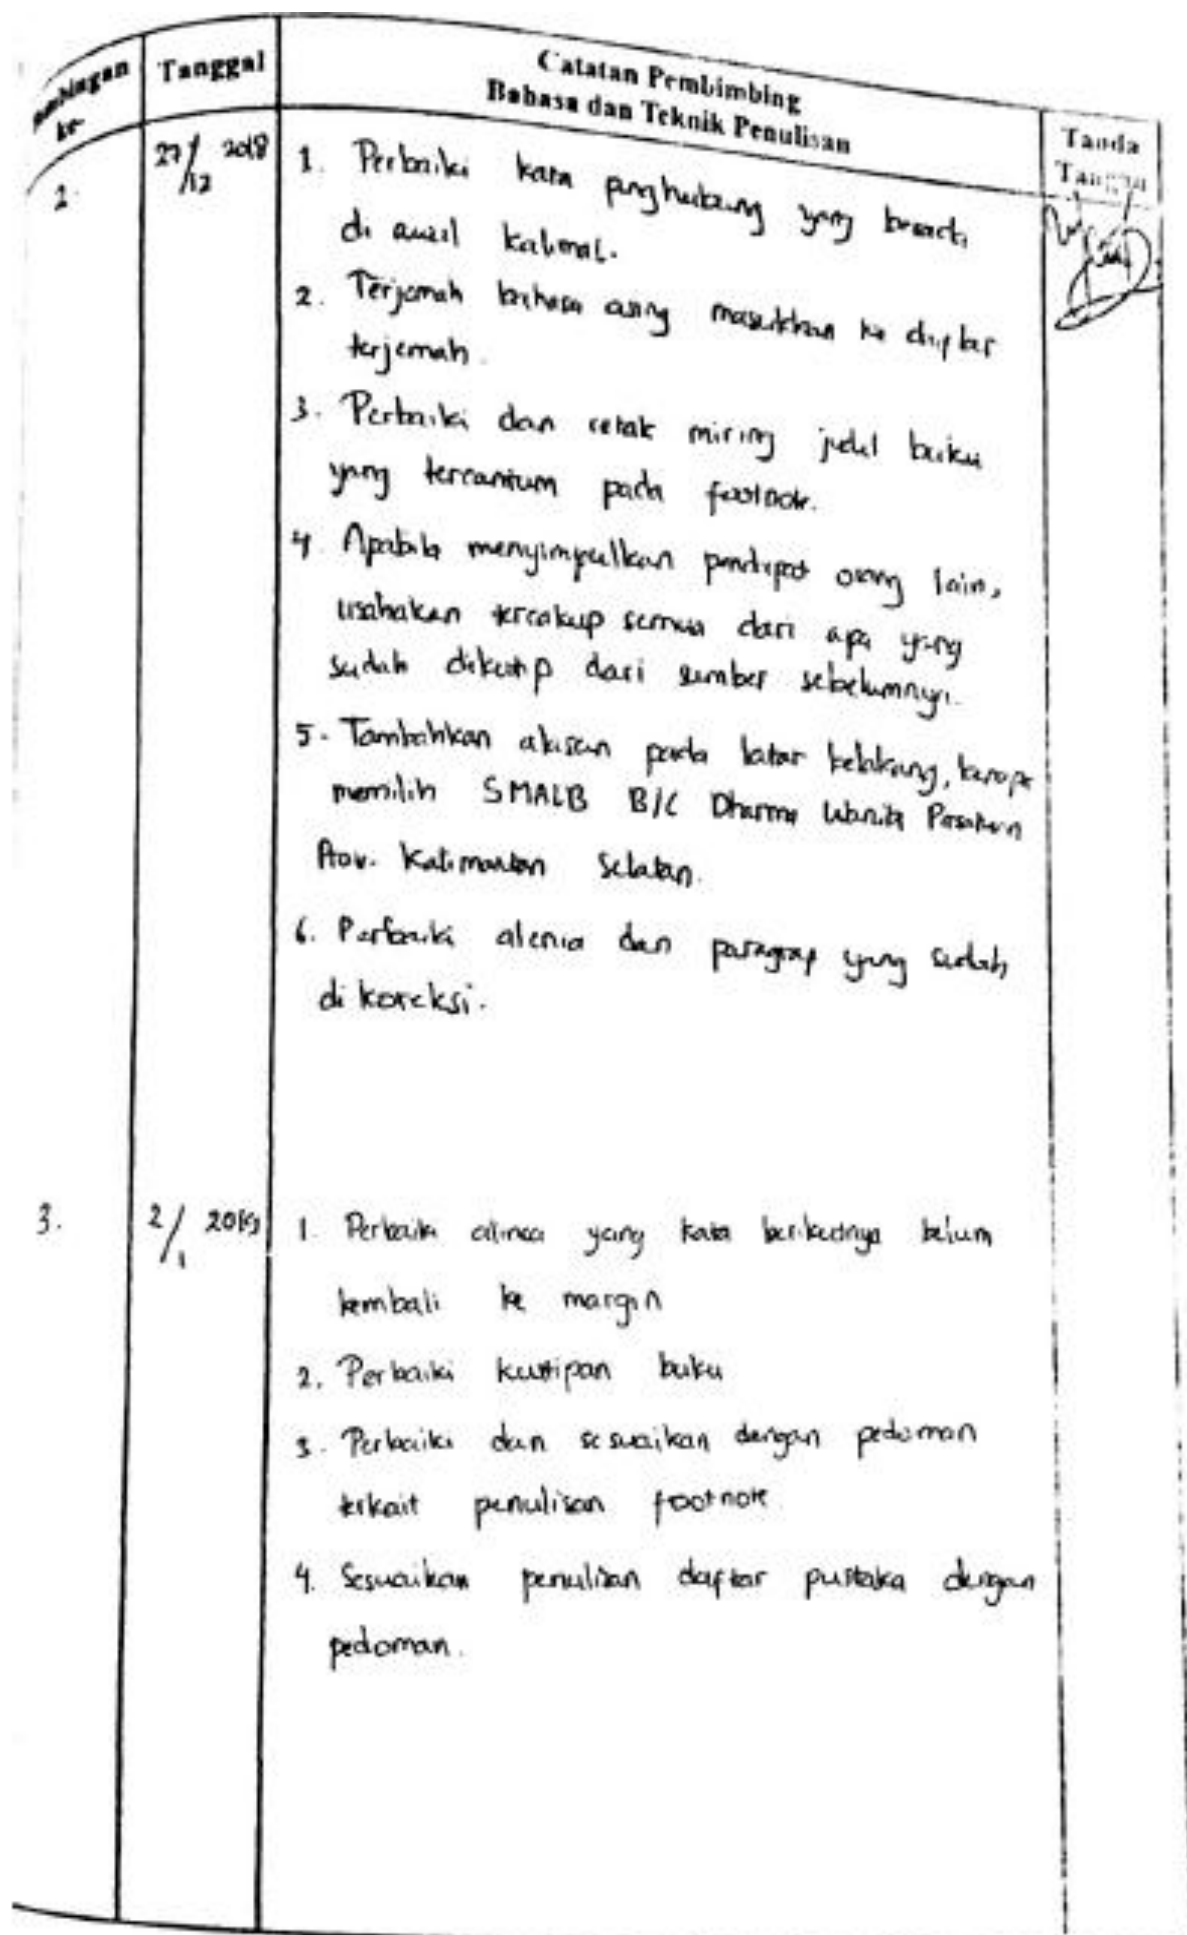 Bimbingan
ke-
Tanggal
Catatan Pembimbing
Bahasa dan Teknik Penulisan
Tanda
Tangan
2.
27/12 2018
1. Perbaiki kata penghubung yang berada
di awal kalimat.
2. Terjemah bahasa asing masukkan ke daftar
terjemah.
3. Perbaiki dan cetak miring judul buku
yang tercantum pada footnote.
4. Apabila menyimpulkan pendapat orang lain,
usahakan tercakup semua dari apa yang
sudah dikutip dari sumber sebelumnya.
5. Tambahkan alasan pada latar belakang, kenapa
memilih SMALB B/C Dharma Wanita Persatuan
Prov. Kalimantan Selatan.
6. Perbaiki alenia dan paragrap yang sudah
di koreksi.
3.
2/1 2019
1. Perbaiki alinea yang kata berikutnya belum
kembali ke margin
2. Perbaiki kuttipan buku
3. Perbaiki dan sesuaikan dengan pedoman
terkait penulisan footnote
4. Sesuaikan penulisan daftar pustaka dengan
pedoman.